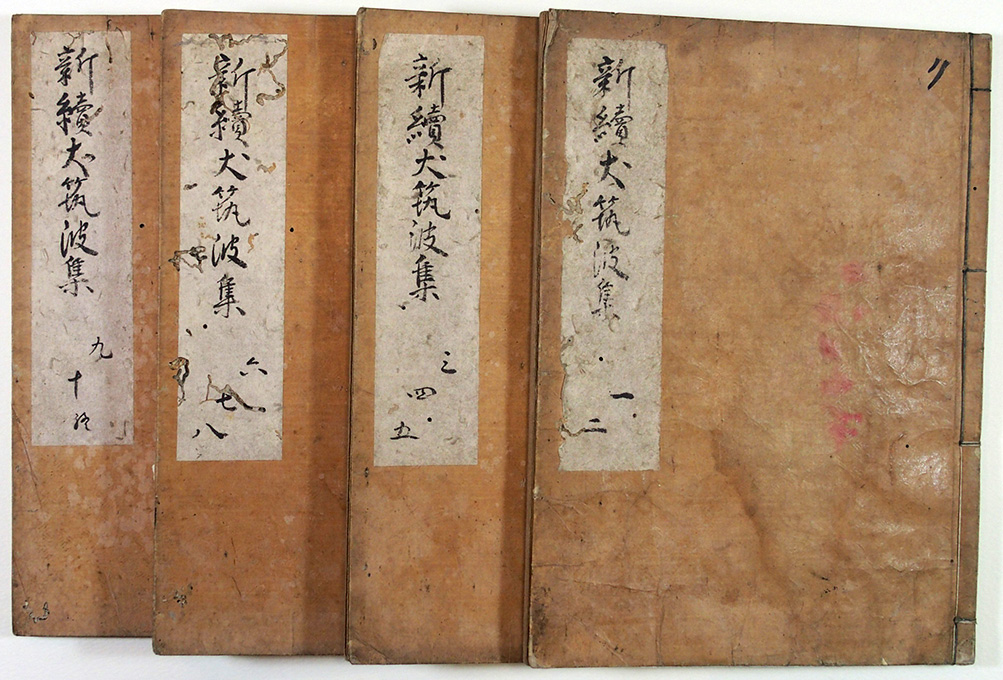 新續犬筑波集
一
二
新續犬筑波集
三
四
五
新續犬筑波集
六
七
八
新續犬筑波集
九
十終